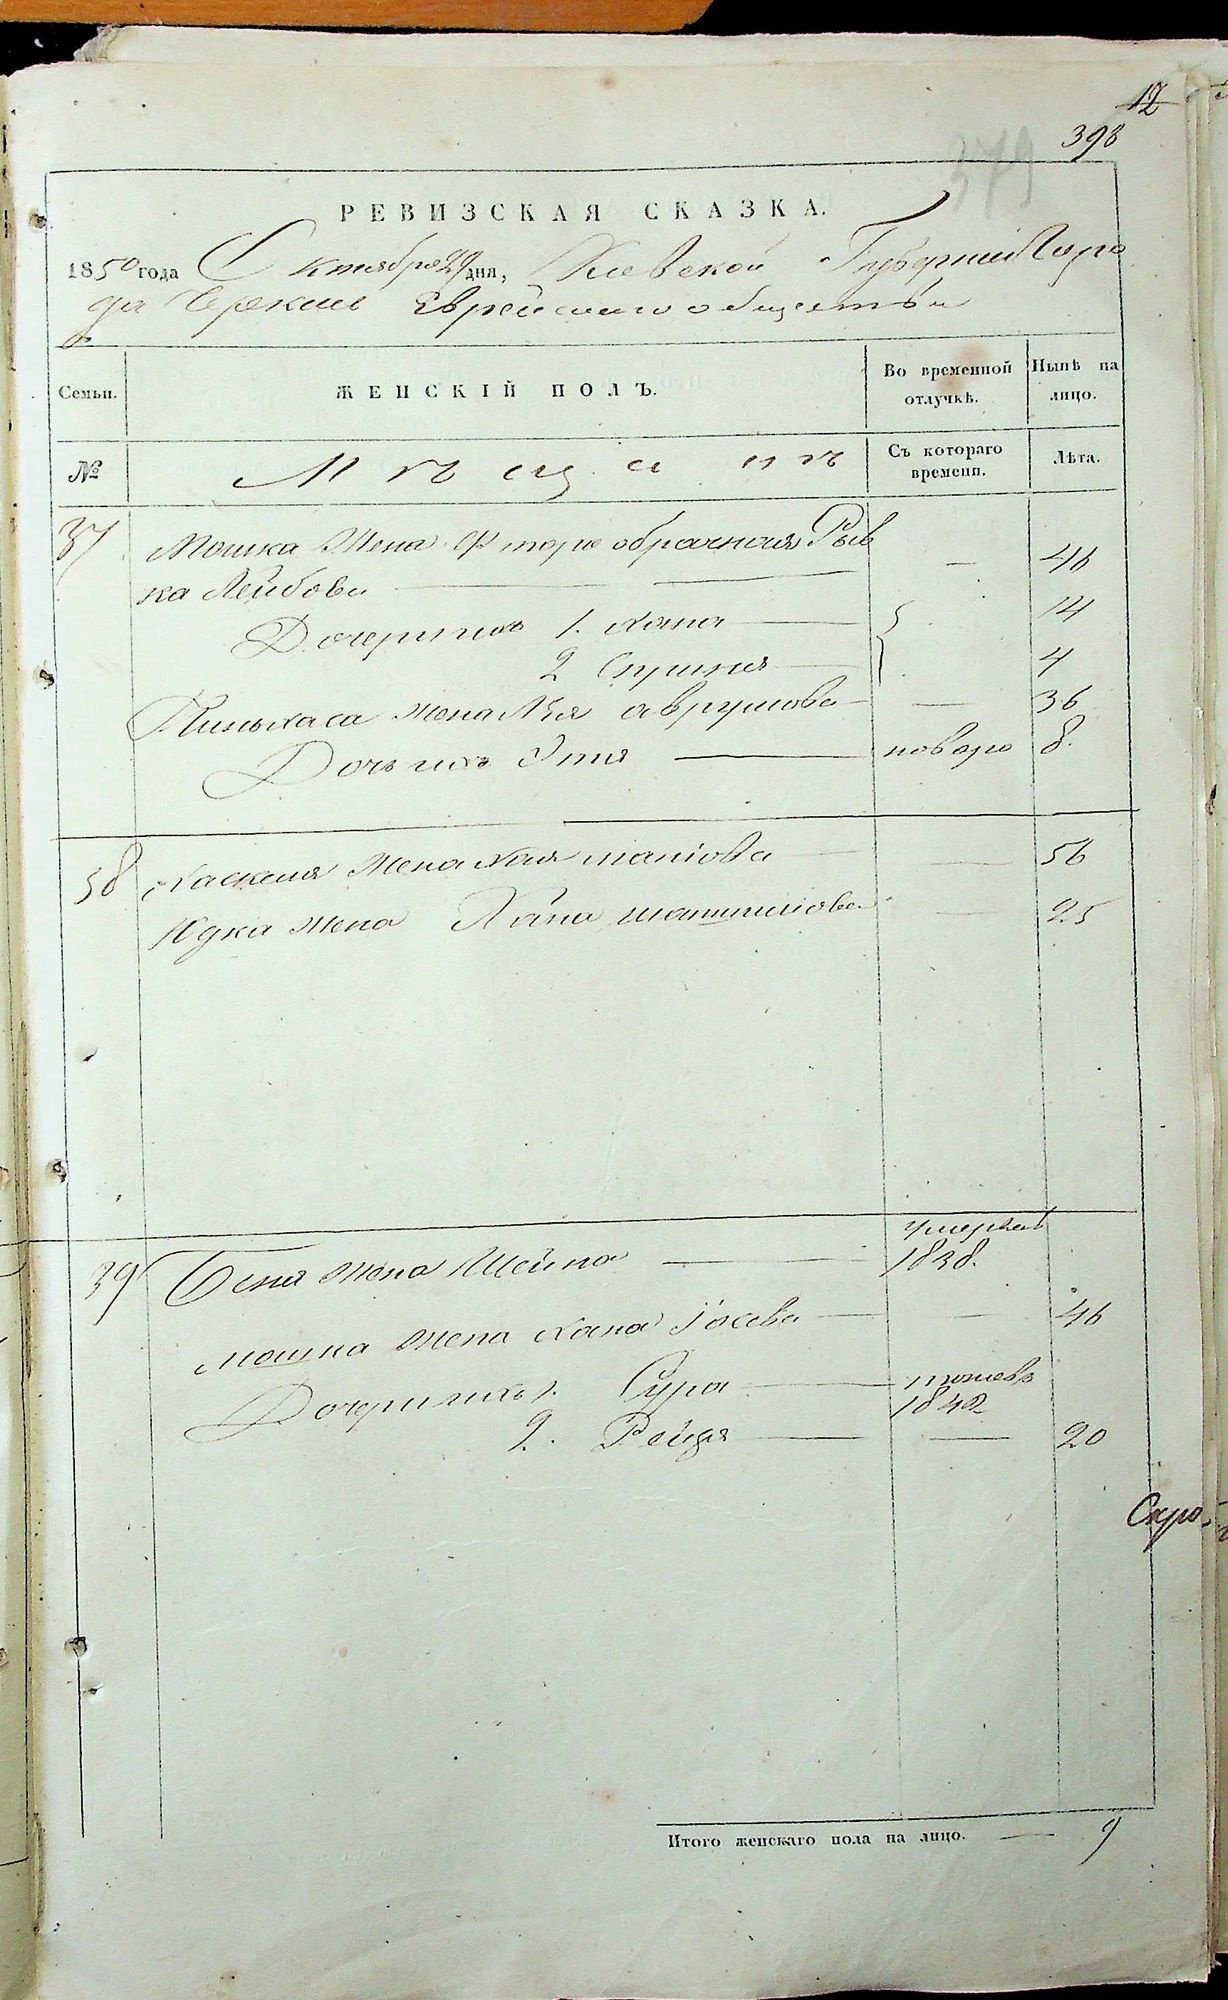 12
398
379
РЕВИЗСКАЯ СКАЗКА.
1850 года Октября 29 дня, Киевской Губернии Горо
да Черкас Еврейского общества
Семьи. ЖЕНСКІЙ ПОЛЪ. Во временной отлучкѣ. Нынѣ на лицо.
№ Мѣщанъ Съ котораго времени. Лѣта.
37 Мошка Жена Фторо обрачная Рыв
ка Лейбова — — 46
Дочери ихъ 1. Хана — 14
2 — 4
Пиньхаса жена Лѣя — — 36
Дочь ихъ Этя — новоро 8.
38 Хаскеля Жена Хая — — 56
Юдка Жена Хана — 25
39 Беня жена Шейна — умерла 1838.
Мошка жена Хана Іосева — — 46
Дочери ихъ 1. Сура — 1842
2. Рейзя — — 20
Скро
Итого женскаго пола на лицо. — 9